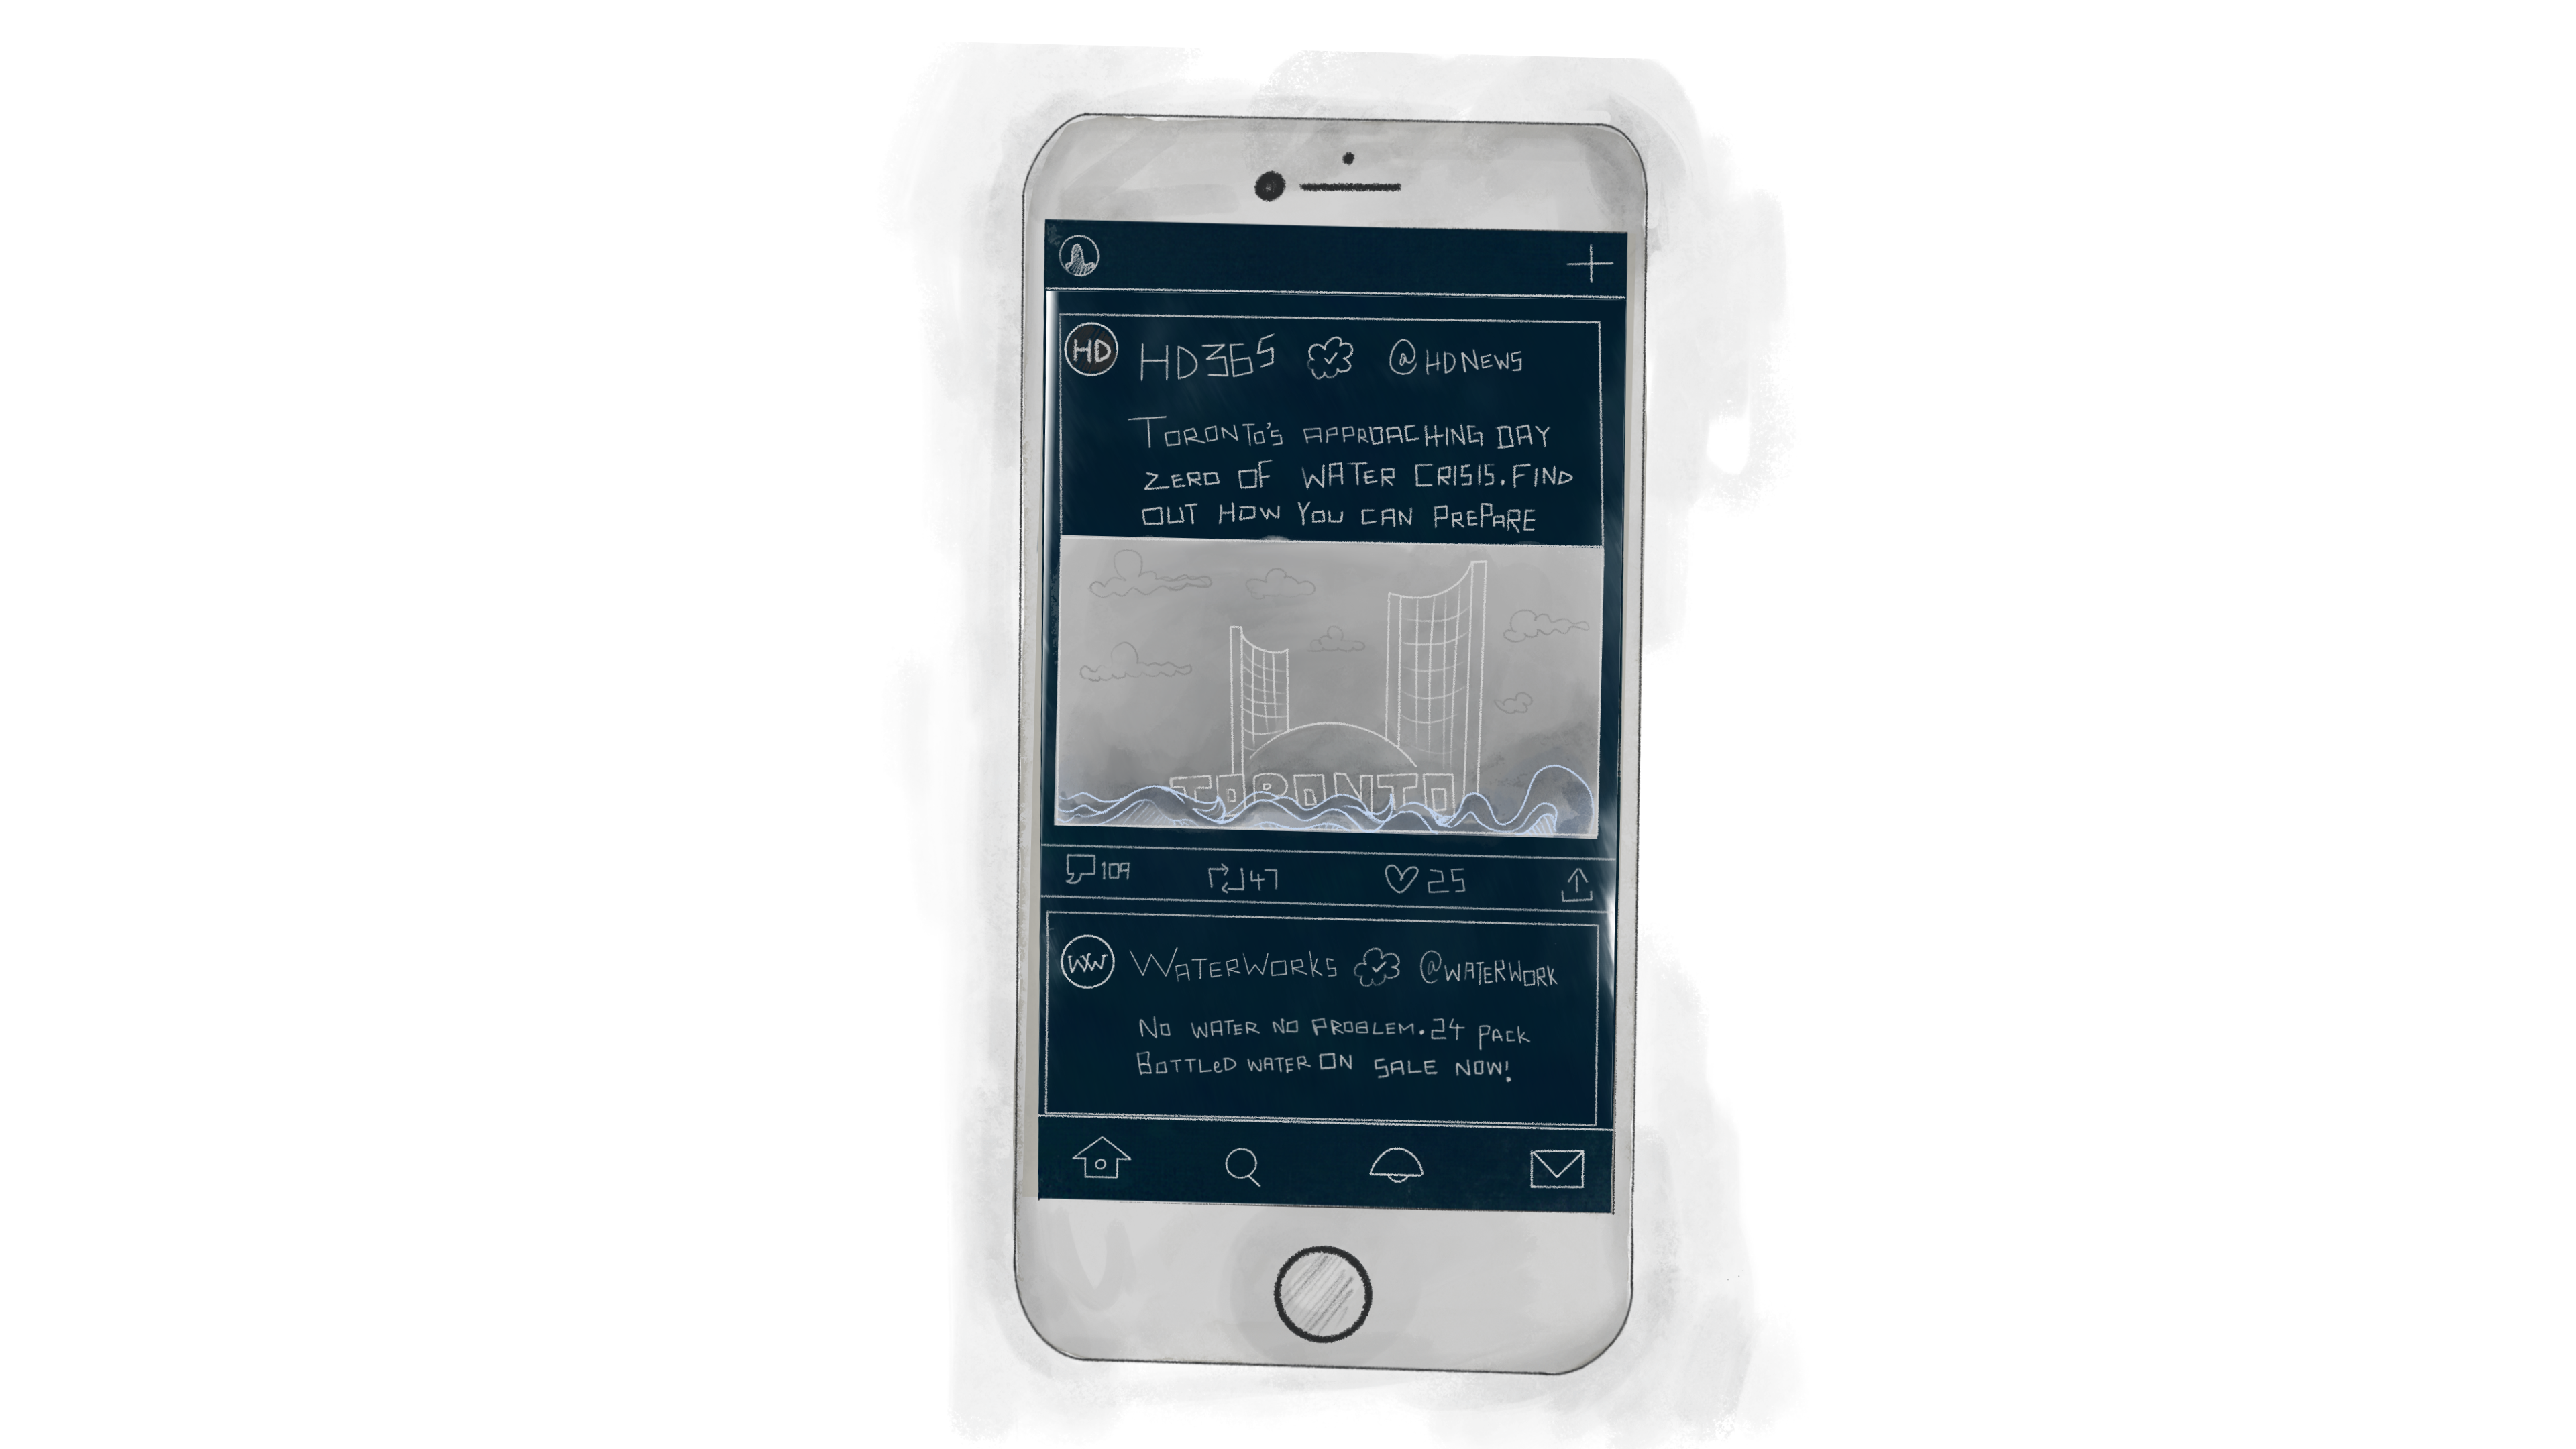 HD
HD365 @HDNEWS
TORONTO'S APPROACHING DAY
ZERO OF WATER CRISIS. FIND
OUT HOW YOU CAN PREPARE
TORONTO
109 47 25
WW
WATERWORKS @WATERWORK
NO WATER NO PROBLEM. 24 PACK
BOTTLeD WATER ON SALE NOW!